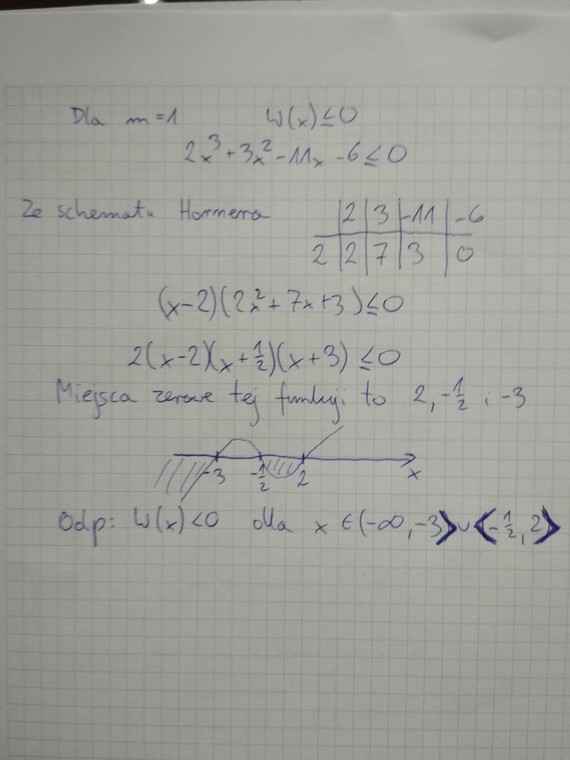 Dla m=1 W(x)≤0
2x³+3x²-11x-6≤0
Ze schematu Hornera
2 3 -11 -6
2 2 7 3 0
(x-2)(2x²+7x+3)≤0
2(x-2)(x+½)(x+3)≤0
Miejsca zerowe tej funkcji to 2, -½ i -3
-3 -½ 2 x
Odp: W(x)<0 dla x ∈(-∞,-3⟩∪⟨-½, 2⟩